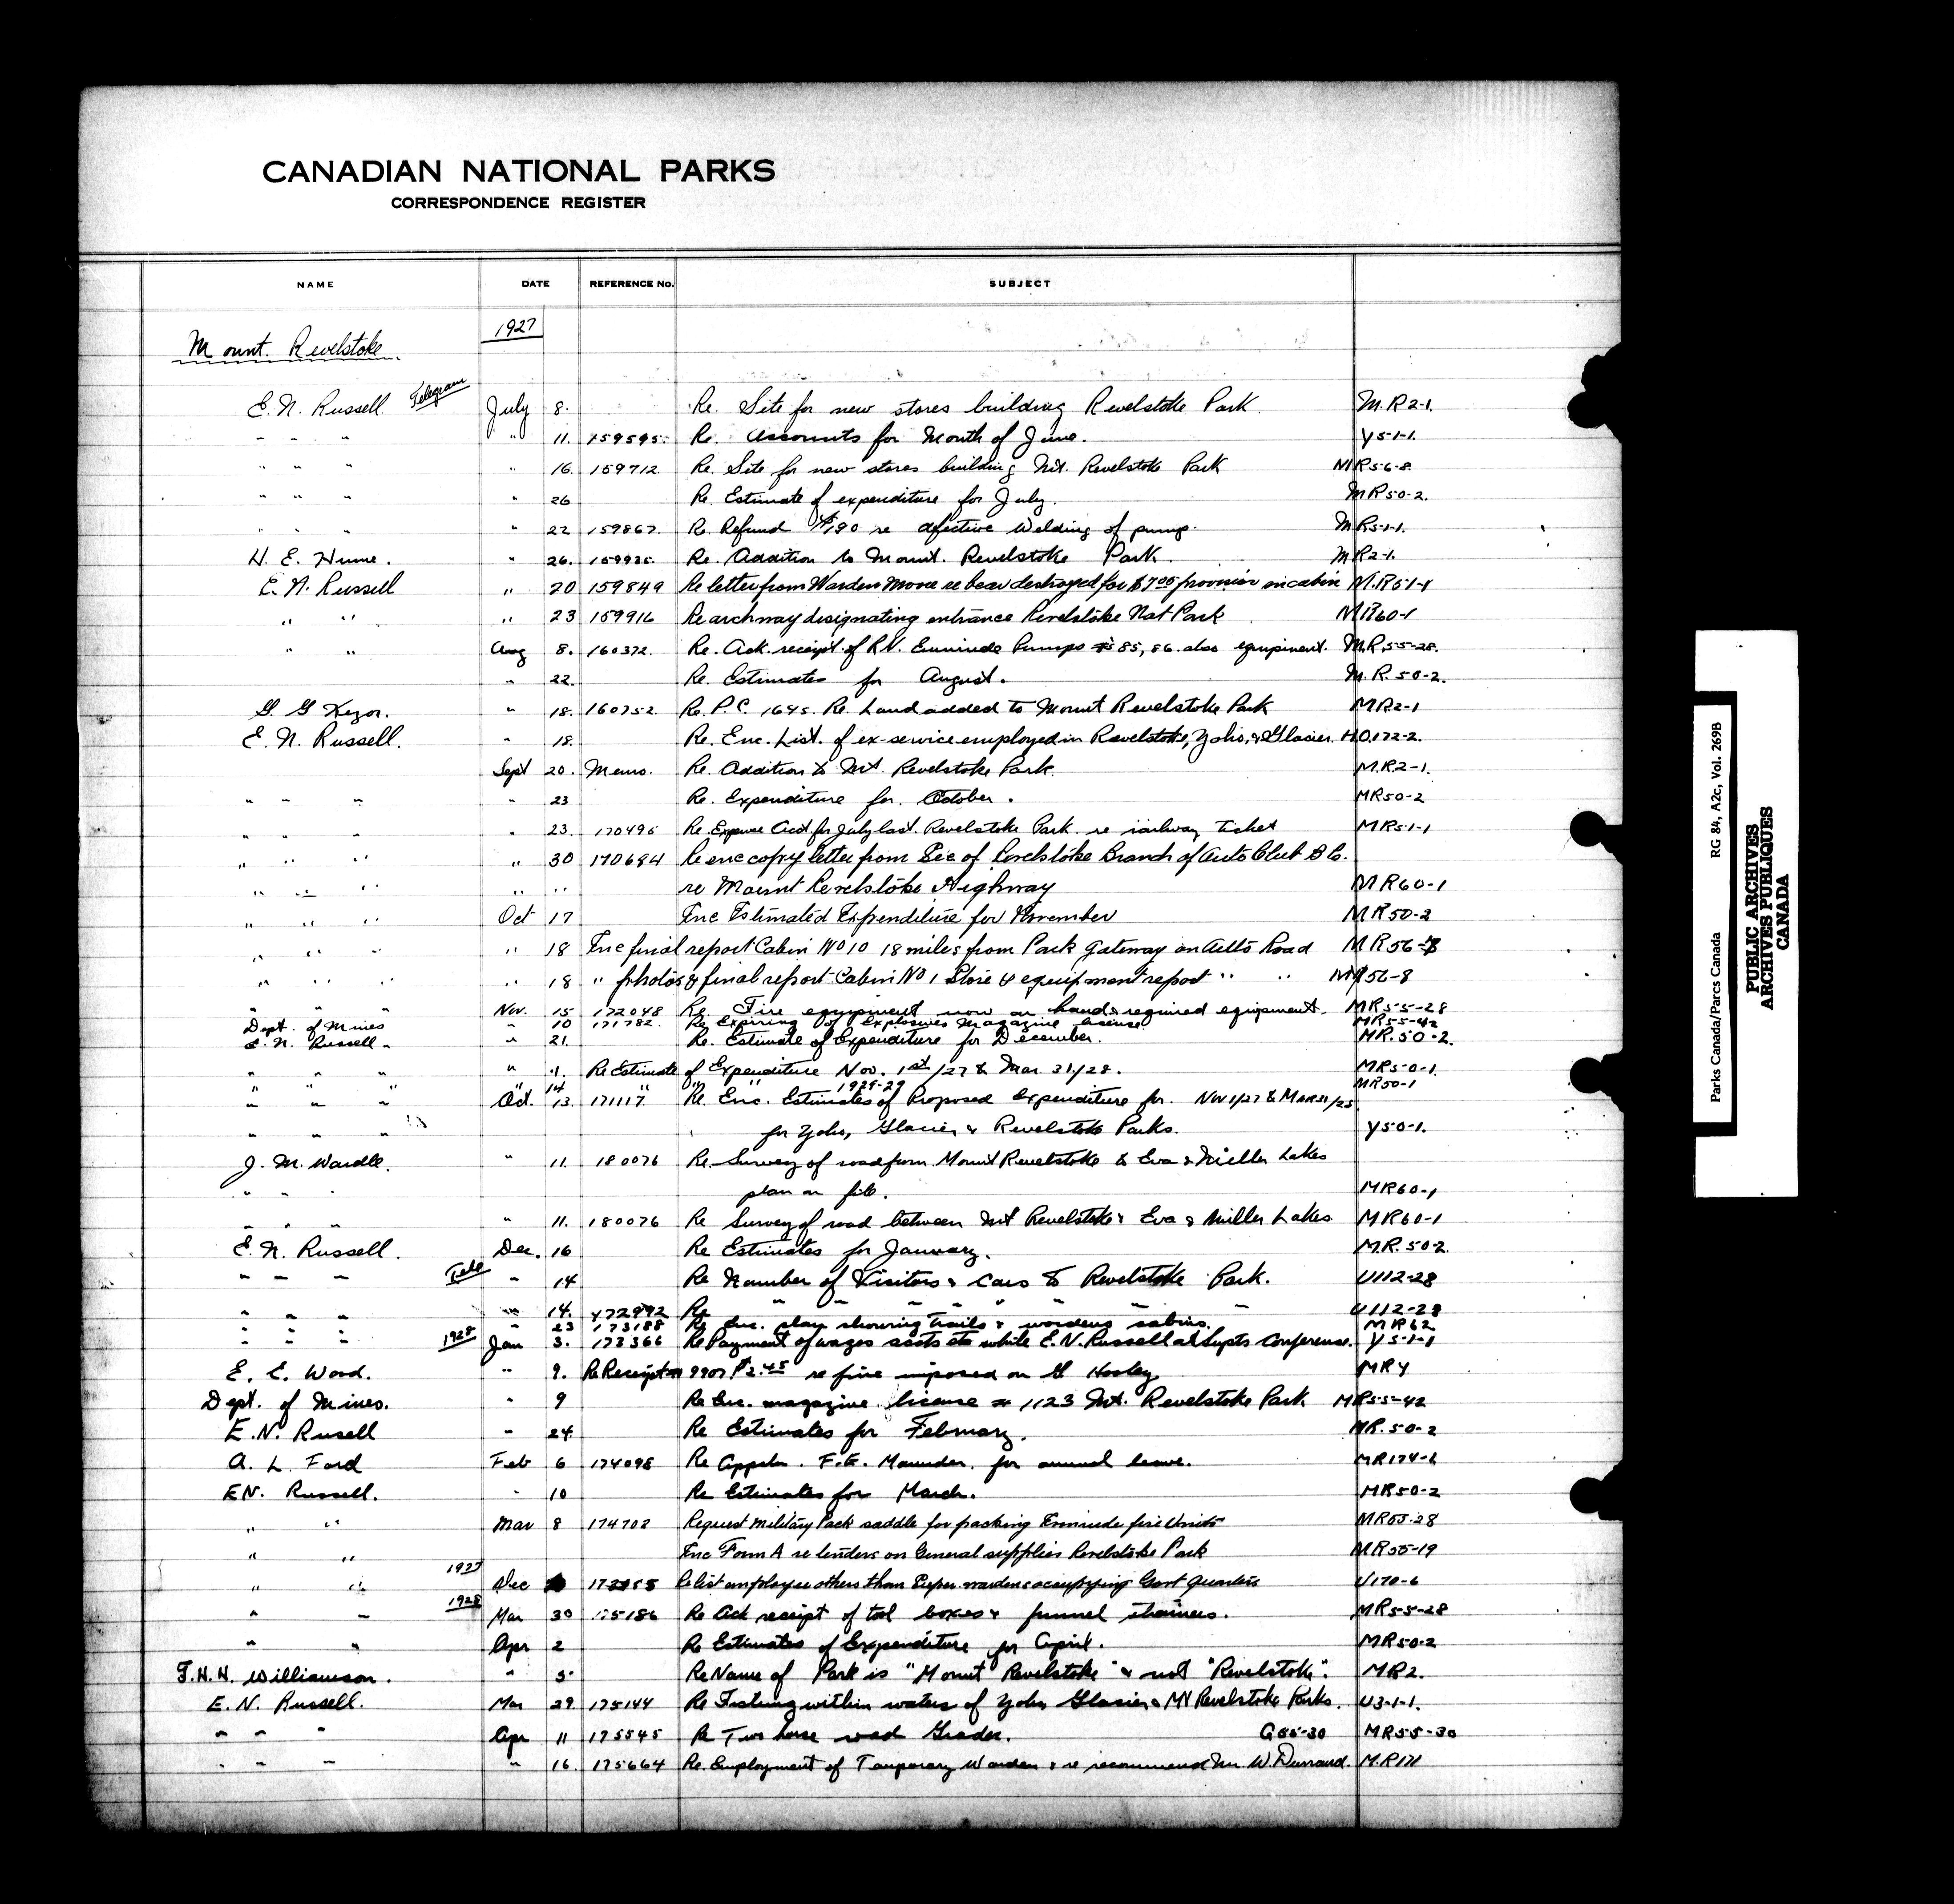 CANADIAN NATIONAL PARKS
CORRESPONDENCE REGISTER
NAME DATE REFERENCE No. SUBJECT
1927
Mount. Revelstoke.
E. N. Russell Telegram July 8. Re. Site for new stores building Revelstoke Park. M.R 2-1.
" " " " 11. 159595 Re. Accounts for Month of June. Y 5-1-1.
" " " " 16. 159712 Re. Site for new stores building Mt. Revelstoke Park MR 56-8.
" " " " 26 Re Estimate of expenditure for July. MR 50-2.
" " " " 22 159867. Re. Refund $1.90 re defective Welding of pump. MR5-1-1.
H. E. Hume. " 26. 159935. Re. Addition to Mount. Revelstoke Park. MR2-1.
E. N. Russell " 20 159849 Re letter from Warden Moore re bear destroyed for $7.00 provision in cabin M.R 5-1-1
" " " 23 159916 Re archway designating entrance Revelstoke Nat Park MR60-1
" " Aug 8. 160372. Re. Ack. receipt of Evinrude Pumps #s 85, 86. also equipment. M.R.55-28.
" 22. Re. Estimates for August. M. R. 50-2.
" 18. 160752. Re. P.C. 1645. Re. Land added to Mount Revelstoke Park MR2-1
E. N. Russell. " 18. Re. Enc. List. of ex-service employed in Revelstoke, Yoho, & Glacier. H.O.172-2.
Sept 20. Memo. Re. Addition to Mt. Revelstoke Park. M.R.2-1.
" " " " 23 Re. Expenditure for. October. MR50-2
" " " " 23. 170495 Re. Expense Acct for July last. Revelstoke Park. re railway Ticket MR5-1-1
" " " " 30 170694 Re enc copy letter from Sec of Revelstoke Branch of Auto Club B C.
" " " " " re Mount Revelstoke Highway MR60-1
" " " Oct 17 Enc Estimated Expenditure for November MR50-2
" " " " 18 Enc final report Cabin No 10 18 miles from Park Gateway on Auto Road MR56-8
" " " " 18 " photos & final report Cabin No 1 Store & equipment report " " MR56-8
" " " Nov. 15 172048 Re. Fire equipment now on hand & required equipment. MR55-28
Dept. of Mines " 10 171782. Re Expiring of Explosives Magazine license MR55-42
E. N. Russell " 21. Re. Estimate of Expenditure for December. MR.50-2.
" " " " 1. Re Estimate of Expenditure Nov. 1st/27 to Mar. 31/28. MR50-1.
" " " " 14 " " " 1928-29 MR50-1
" " " Oct. 13. 171117. Re. Enc. Estimates of Proposed Expenditure for. Nov 1/27 to Mar 31/28
" " " for Yoho, Glacier & Revelstoke Parks. Y50-1.
J. M. Wardle. " 11. 180076 Re. Survey of road from Mount Revelstoke to Eva & Miller Lakes
" " " plan on file. MR60-1
" " " " 11. 180076 Re Survey of road between Mt Revelstoke & Eva & Miller Lakes MR60-1
E. N. Russell. Dec. 16 Re Estimates for January. M.R. 50-2.
" " " Tele " 14 Re Number of Visitors & cars to Revelstoke Park. U112-28
" " " " 14. 172992 Re " " " " " " " U112-28
" " " " 23 173188 Re Enc. plan showing trails & wardens cabins. MR62
" " " 1928 Jan 3. 173366 Re Payment of wages accts etc while E.N. Russell at Supts Conference. Y5-1-1
E. E. Wood. " 9. Re Receipt # 9907 $2.45 re fine imposed on G Hooley MRY
Dept. of Mines. " 9 Re Enc. magazine license # 1123 Mt. Revelstoke Park MR55-42
E. N. Rusell " 24. Re Estimates for February. MR.50-2
A. L. Ford Feb 6 174098 Re Appln. F.E. Maunder. for annual leave. MR174-1
EN. Russell. " 10 Re Estimates for March. MR50-2
" " Mar 8 174702 Request Military Pack saddle for packing Evinrude fire Units MR55-28
" " Enc Form A re tenders on General supplies Revelstoke Park MR55-19
" " 1927 Dec Re list employees others than Super. wardens occupying Govt Quarters U170-6
" " 1928 Mar 30 175186 Re Ack receipt of tool boxes & funnel strainers. MR55-28
" " Apr 2 Re Estimates of Expenditure for April. MR50-2
F.H.H. Williamson. " 5. Re Name of Park is "Mount Revelstoke" & not "Revelstoke". MR2.
E. N. Russell. Mar 29. 175144 Re Fishing within waters of Yoho Glacier & Mt Revelstoke Parks. U3-1-1.
" " " Apr 11 175545 Re Two horse road Grader. G55-30 MR55-30
" " " " 16. 175664 Re. Employment of Temporary Warden & re recommend Mr. W. Durrand. M.R171
Parks Canada/Parcs Canada RG 84, A2c, Vol. 269B
PUBLIC ARCHIVES
ARCHIVES PUBLIQUES
CANADA